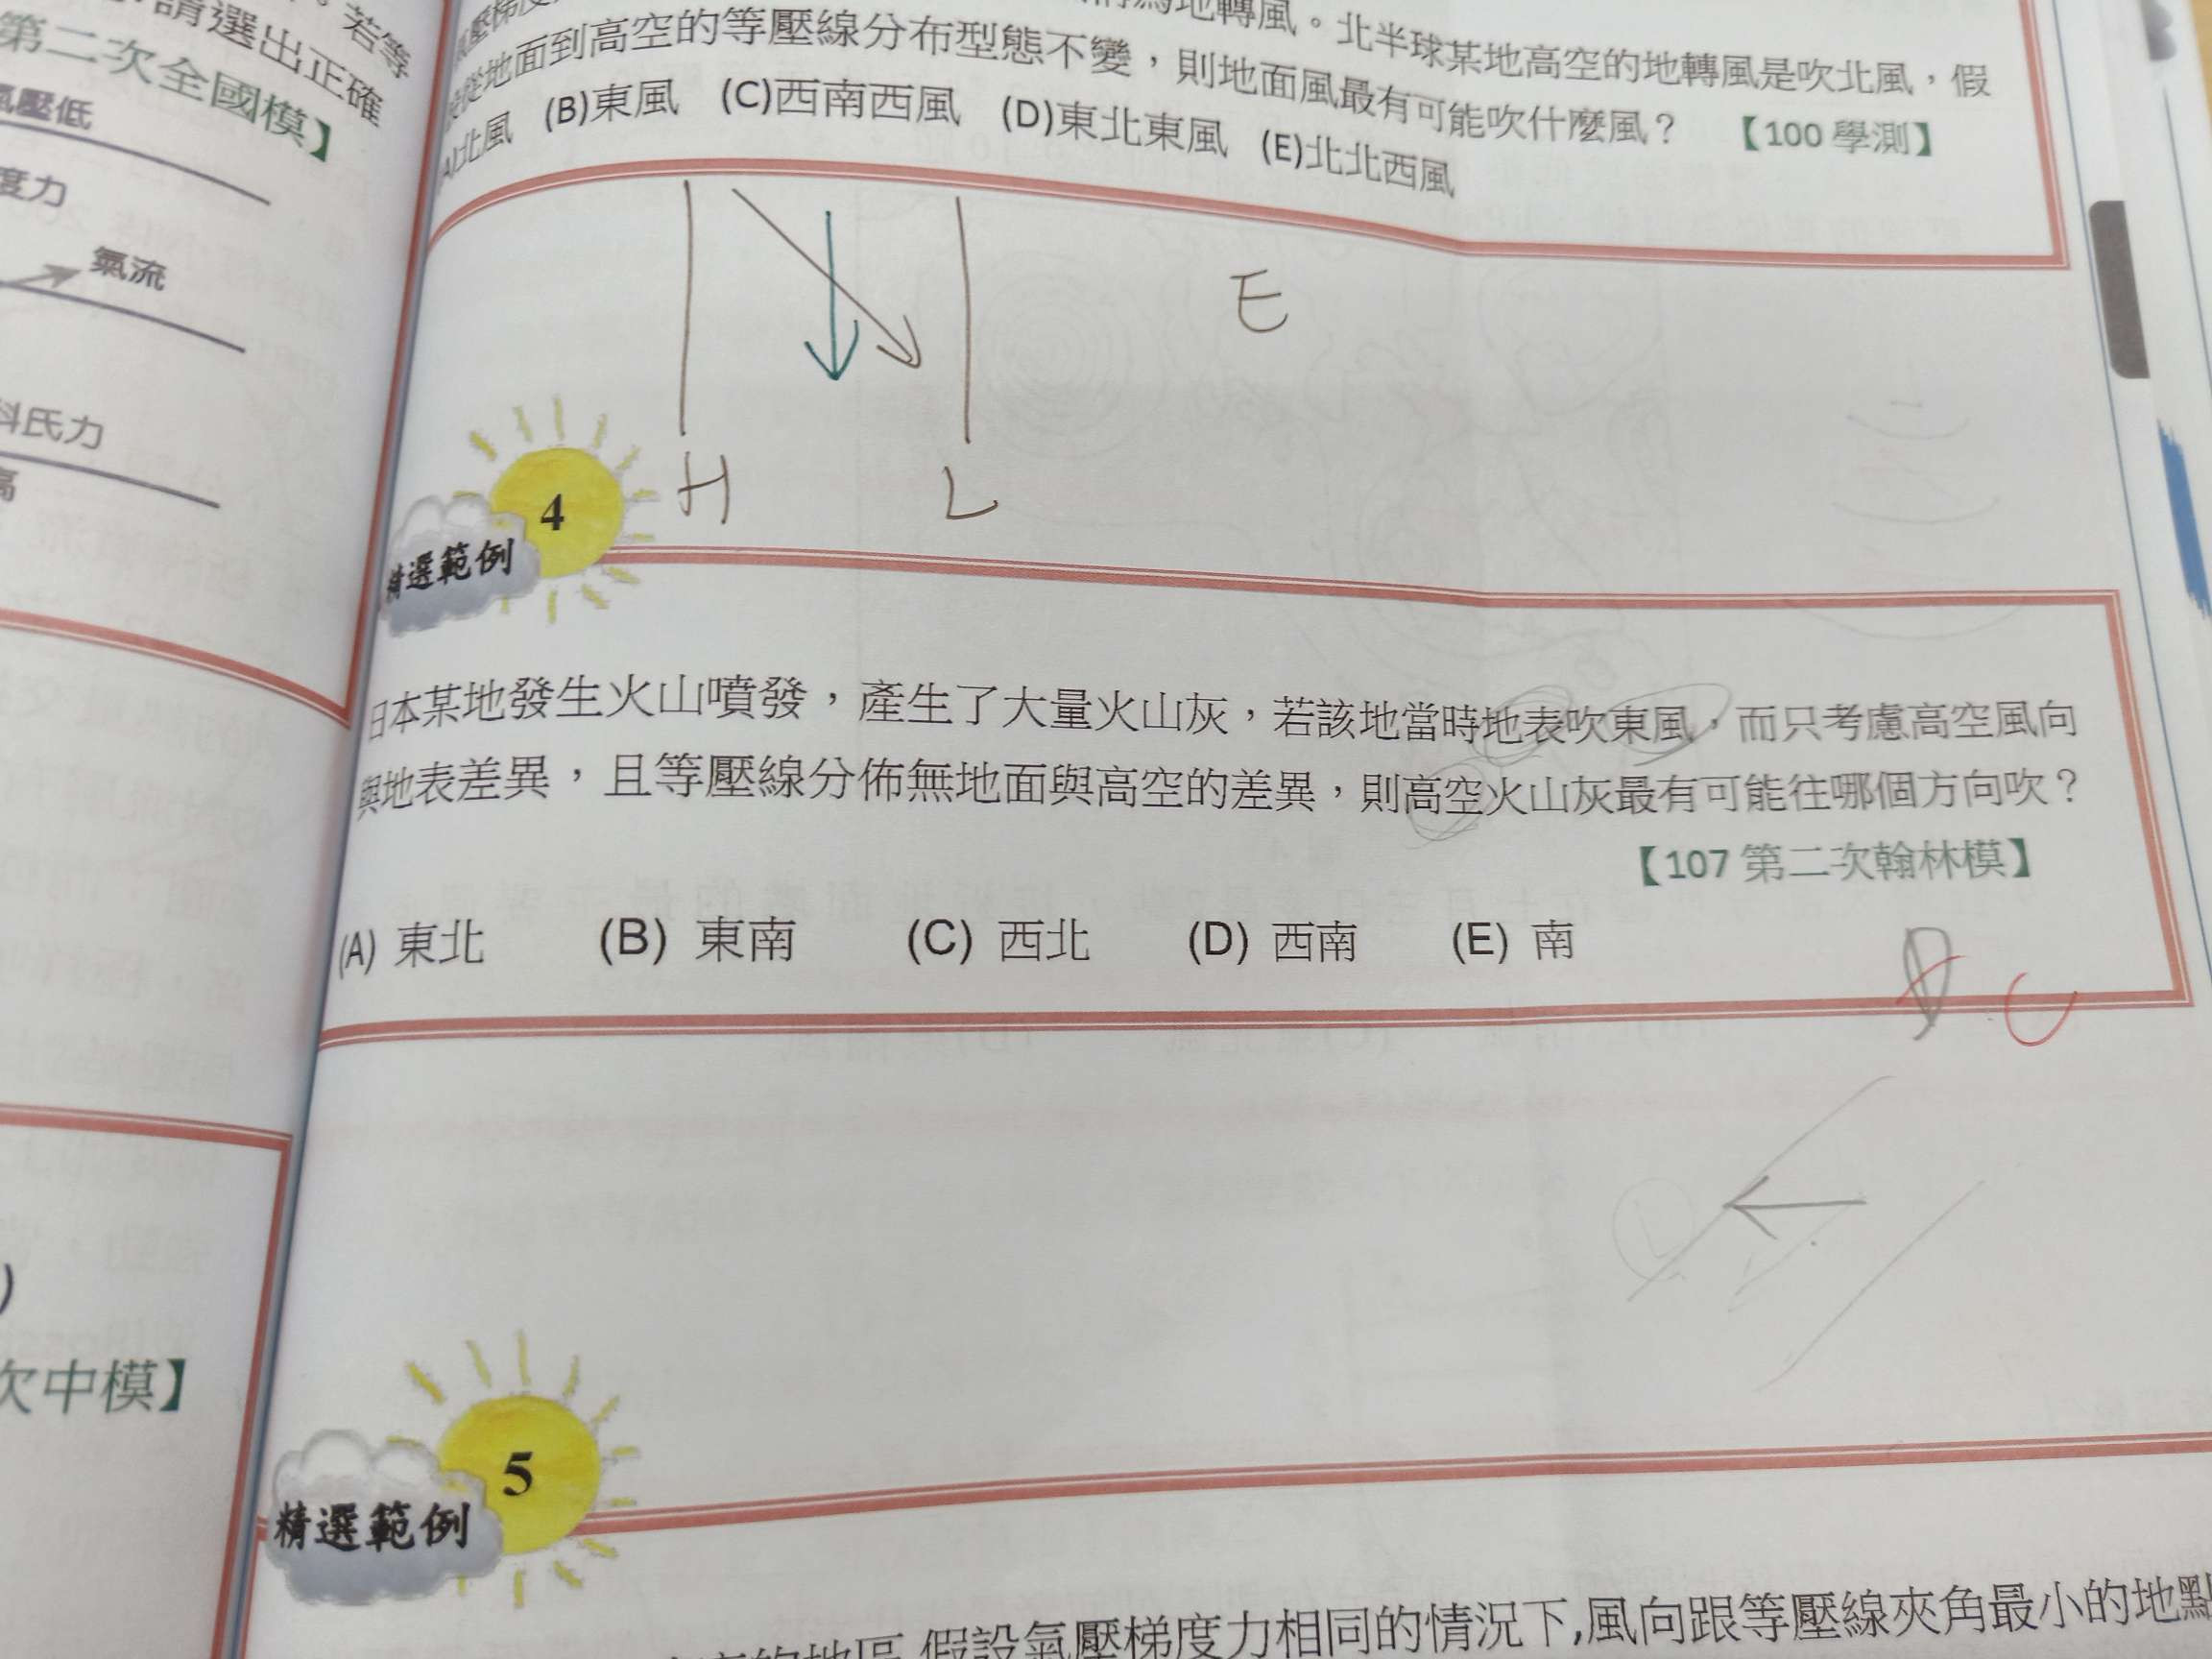 。若等
請選出正確
第二次全國模】
氣壓低
度力
氣流
科氏力
高
次中模】
地轉風。北半球某地高空的地轉風是吹北風,假
從地面到高空的等壓線分布型態不變,則地面風最有可能吹什麼風? 【100 學測】
(A)北風 (B)東風 (C)西南西風 (D)東北東風 (E)北北西風
E
H L
4
精選範例
日本某地發生火山噴發,產生了大量火山灰,若該地當時地表吹東風,而只考慮高空風向
與地表差異,且等壓線分佈無地面與高空的差異,則高空火山灰最有可能往哪個方向吹?
【107 第二次翰林模】
(A) 東北 (B) 東南 (C) 西北 (D) 西南 (E) 南
D C
L
5
精選範例
的地區,假設氣壓梯度力相同的情況下,風向跟等壓線夾角最小的地點